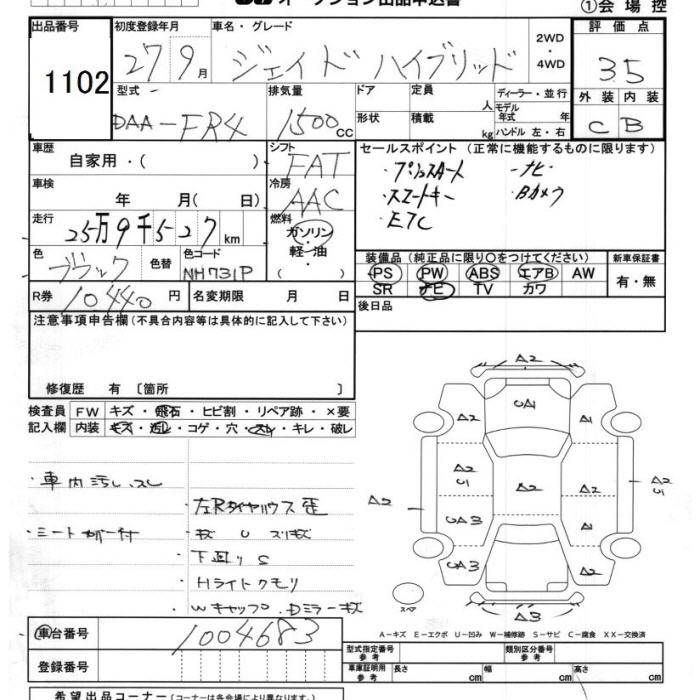 オークション出品申込書
①会場控
出品番号 初度登録年月 車名・グレード 2WD・4WD 評価点
1102 27 9月 ジェイド ハイブリッド 3.5
型式 排気量 ドア 定員 人 ディーラー・並行 外装 内装
DAA-FR4 1500cc 形状 積載 kg モデル年式 年 ハンドル 左・右 C B
車歴 自家用・( ) シフト FAT セールスポイント (正常に機能するものに限ります)
車検 年 月( 日) 冷房 AAC ・プッシュスタート ・ナビ
・スマートキー ・Bカメラ
・ETC
走行 25万9千527km 燃料 ガソリン・軽・油 ( )
色 ブラック 色替 色コード NH731P
装備品 (純正品に限り○をつけてください) 新車保証書
PS PW ABS エアB AW 有・無
SR ナビ TV カワ
R券 10,440円 名変期限 月 日 後日品
注意事項申告欄 (不具合内容等は具体的に記入して下さい)
修復歴 有 〔箇所 〕
検査員 FW キズ・飛石・ヒビ割・リペア跡・×要
記入欄 内装 キズ・汚レ・コゲ・穴・スレ・キレ・破レ
・車内汚レ、スレ
・左Rタイヤハウス歪
・シートカバー付 ・キズ U スリキズ
・下廻りS
・Hライトクモリ
・Wキャップ、Dミラーキズ
A2
A2 UA1 A1
A2 A2 U1 A2 A2 A2 U1
UA3 A1
UA3 A2
スペア A3
A-キズ E-エクボ U-凹み W-補修跡 S-サビ C-腐食 XX-交換済
車台番号 1004683 型式指定番号 参考 類別区分番号 参考
登録番号 車庫証明用 参考 長さ cm 幅 cm 高さ cm
希望出品コーナー (コーナーは各会場により異なります。)